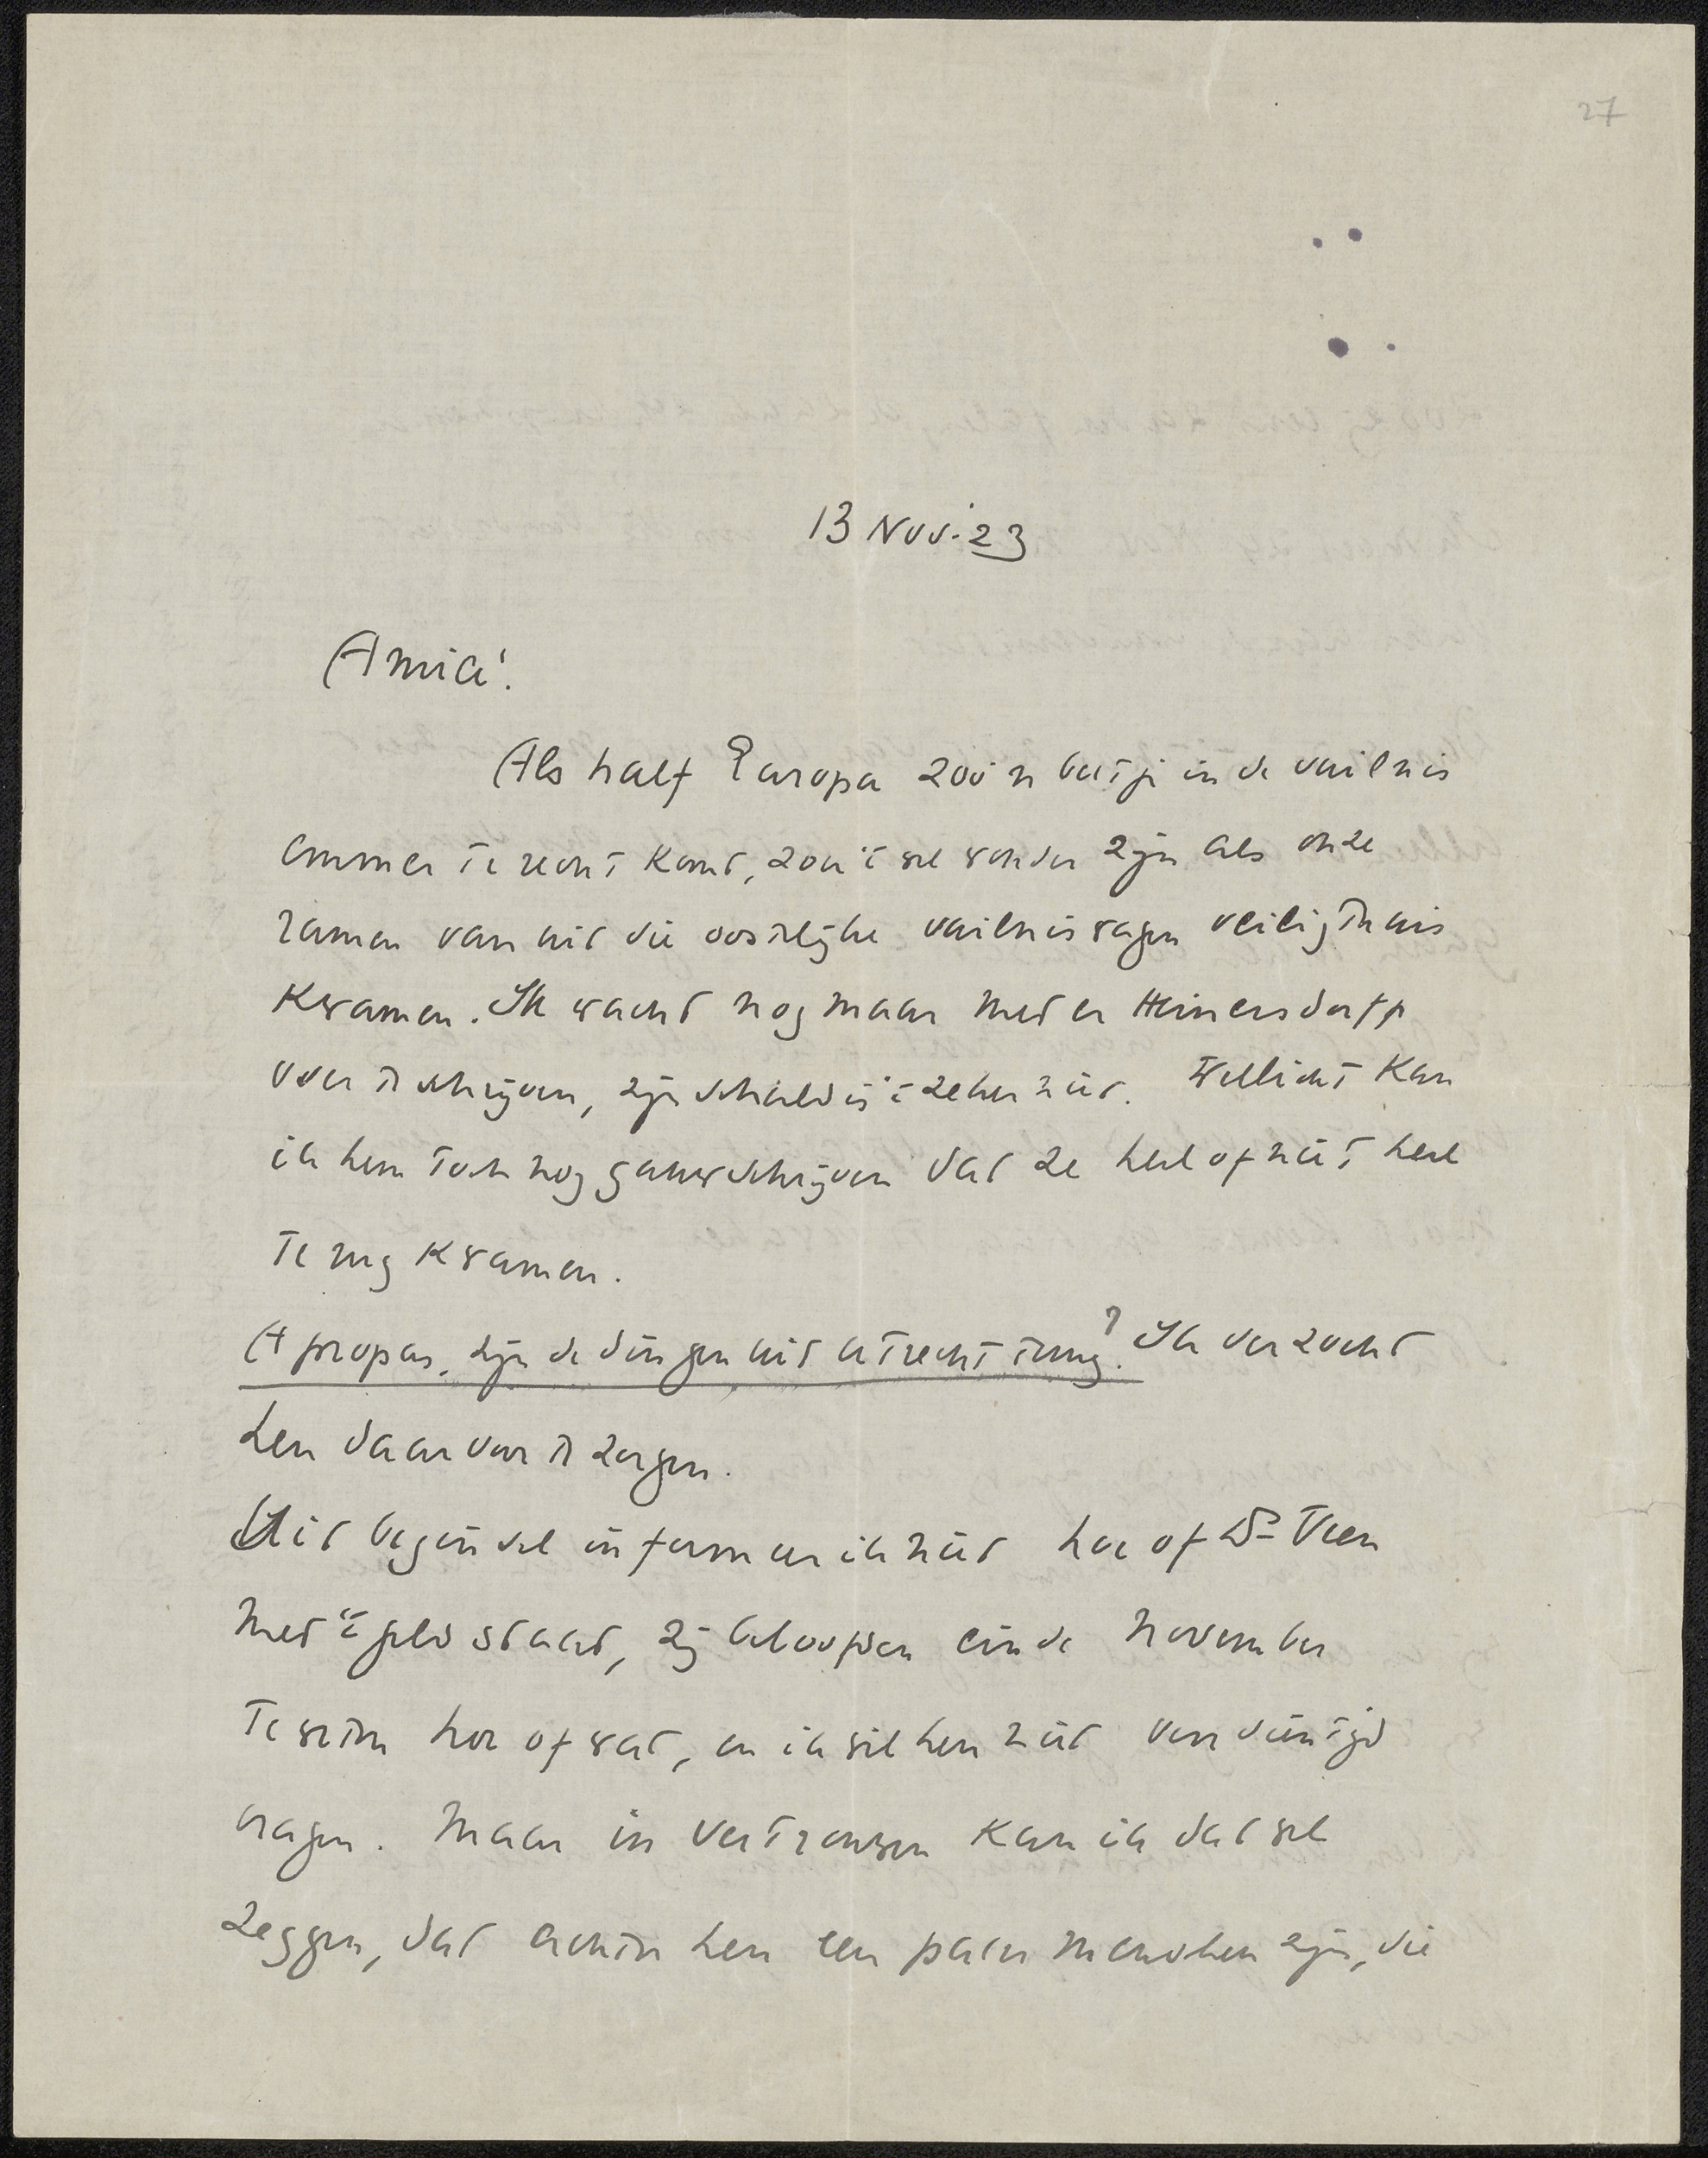 27
13 Nov. 23
Amice!
Als half Europa zoo'n beetje in de vuilnis
emmer te recht komt, zou 't wel wonder zijn als onze
ramen van uit die oostelijke vuilniswagen veilig thuis
kwamen. Ik wacht nog maar met er Heinersdorff
over te schrijven, zijn schuld is 't zeker niet. Wellicht kan
ik hem toch nog gauw schrijven dat ze heel of niet heel
terug kwamen.
A propos, zijn de dingen uit Utrecht terug? Ik verzocht
hen daarvoor te zorgen.
Uit beginsel informeer ik niet hoe of Ds Veen
met 't geld staat, zij beloofden einde November
te weten hoe of wat, en ik wil hen niet voor dien tijd
vragen. Maar in vertrouwen kan ik dat wel
zeggen, dat achter hen een paar menschen zijn, die